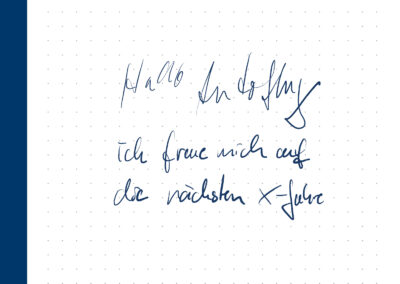 Hallo Intoflug
ich freue mich auf
die nächsten X-Jahre